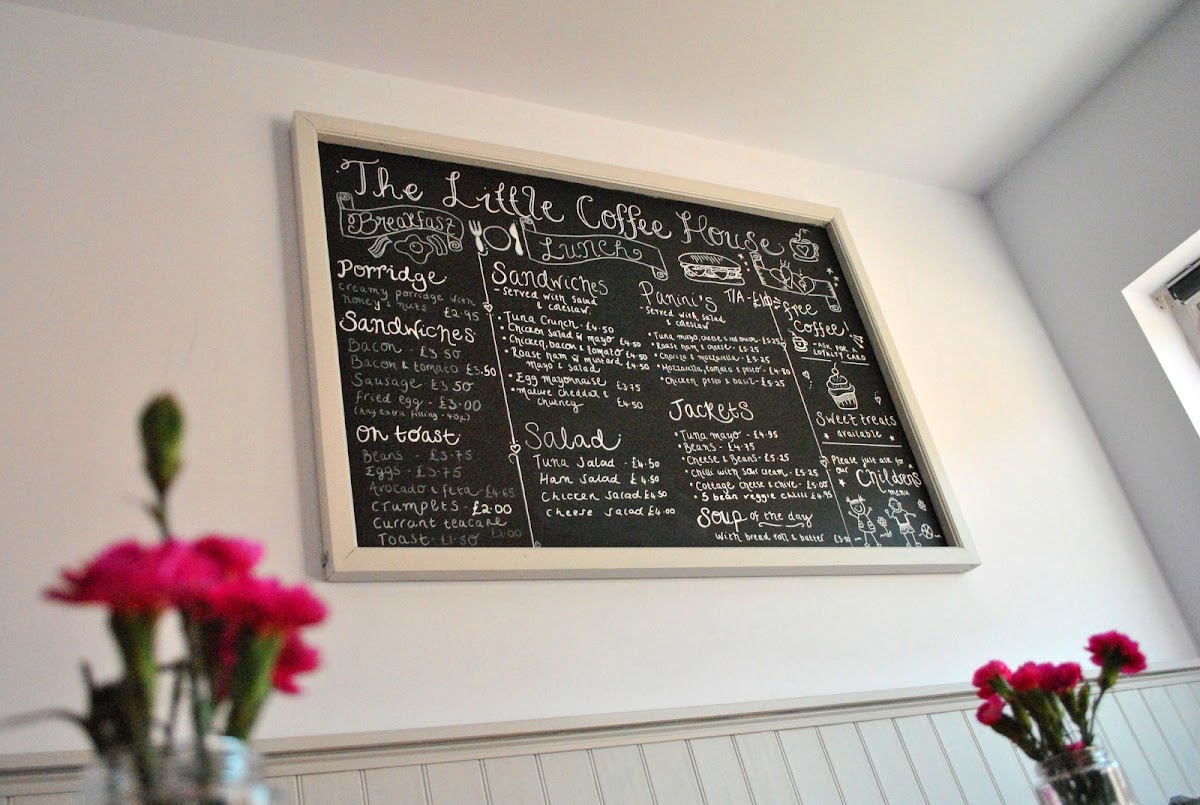 The Little Coffee House
Breakfast
Porridge
creamy porridge with
honey & nuts £2.95
Sandwiches
Bacon - £3.50
Bacon & tomato £3.50
Sausage - £3.50
Fried egg - £3.00
(Any extra filling - 40p)
On toast
Beans - £3.75
Eggs - £3.75
Avocado & feta - £4.65
Crumpets - £2.00
Currant teacake
£2.00
Toast - £1.50
Lunch
Sandwiches
- Served with salad
& coleslaw
• Tuna Crunch - £4.50
• Chicken salad & mayo £4.50
• Chicken, bacon & tomato £4.50
• Roast ham & mustard £4.50
mayo & salad
• Egg mayonnaise £3.75
• Mature cheddar &
chutney £4.50
Salad
Tuna Salad - £4.50
Ham Salad £4.50
Chicken Salad £4.50
Cheese Salad £4.00
Panini's
- Served with salad
& coleslaw
T/A -
• Tuna mayo, cheese & red onion £5.25
• Roast ham & cheese - £5.25
• Chorizo & mozzarella - £5.25
• Mozzarella, tomato & pesto - £4.80
• Chicken pesto & basil - £5.25
Jackets
• Tuna mayo - £4.95
• Beans - £4.75
• Cheese & Beans - £5.25
• Chilli with sour cream - £5.25
• Cottage cheese & chive - £5.00
• 5 bean veggie chilli £4.95
Soup of the day
with bread roll & butter
free
coffee!
- ASK FOR A
LOYALTY CARD
Sweet treats
available
Please just ask for
our Childrens
menu